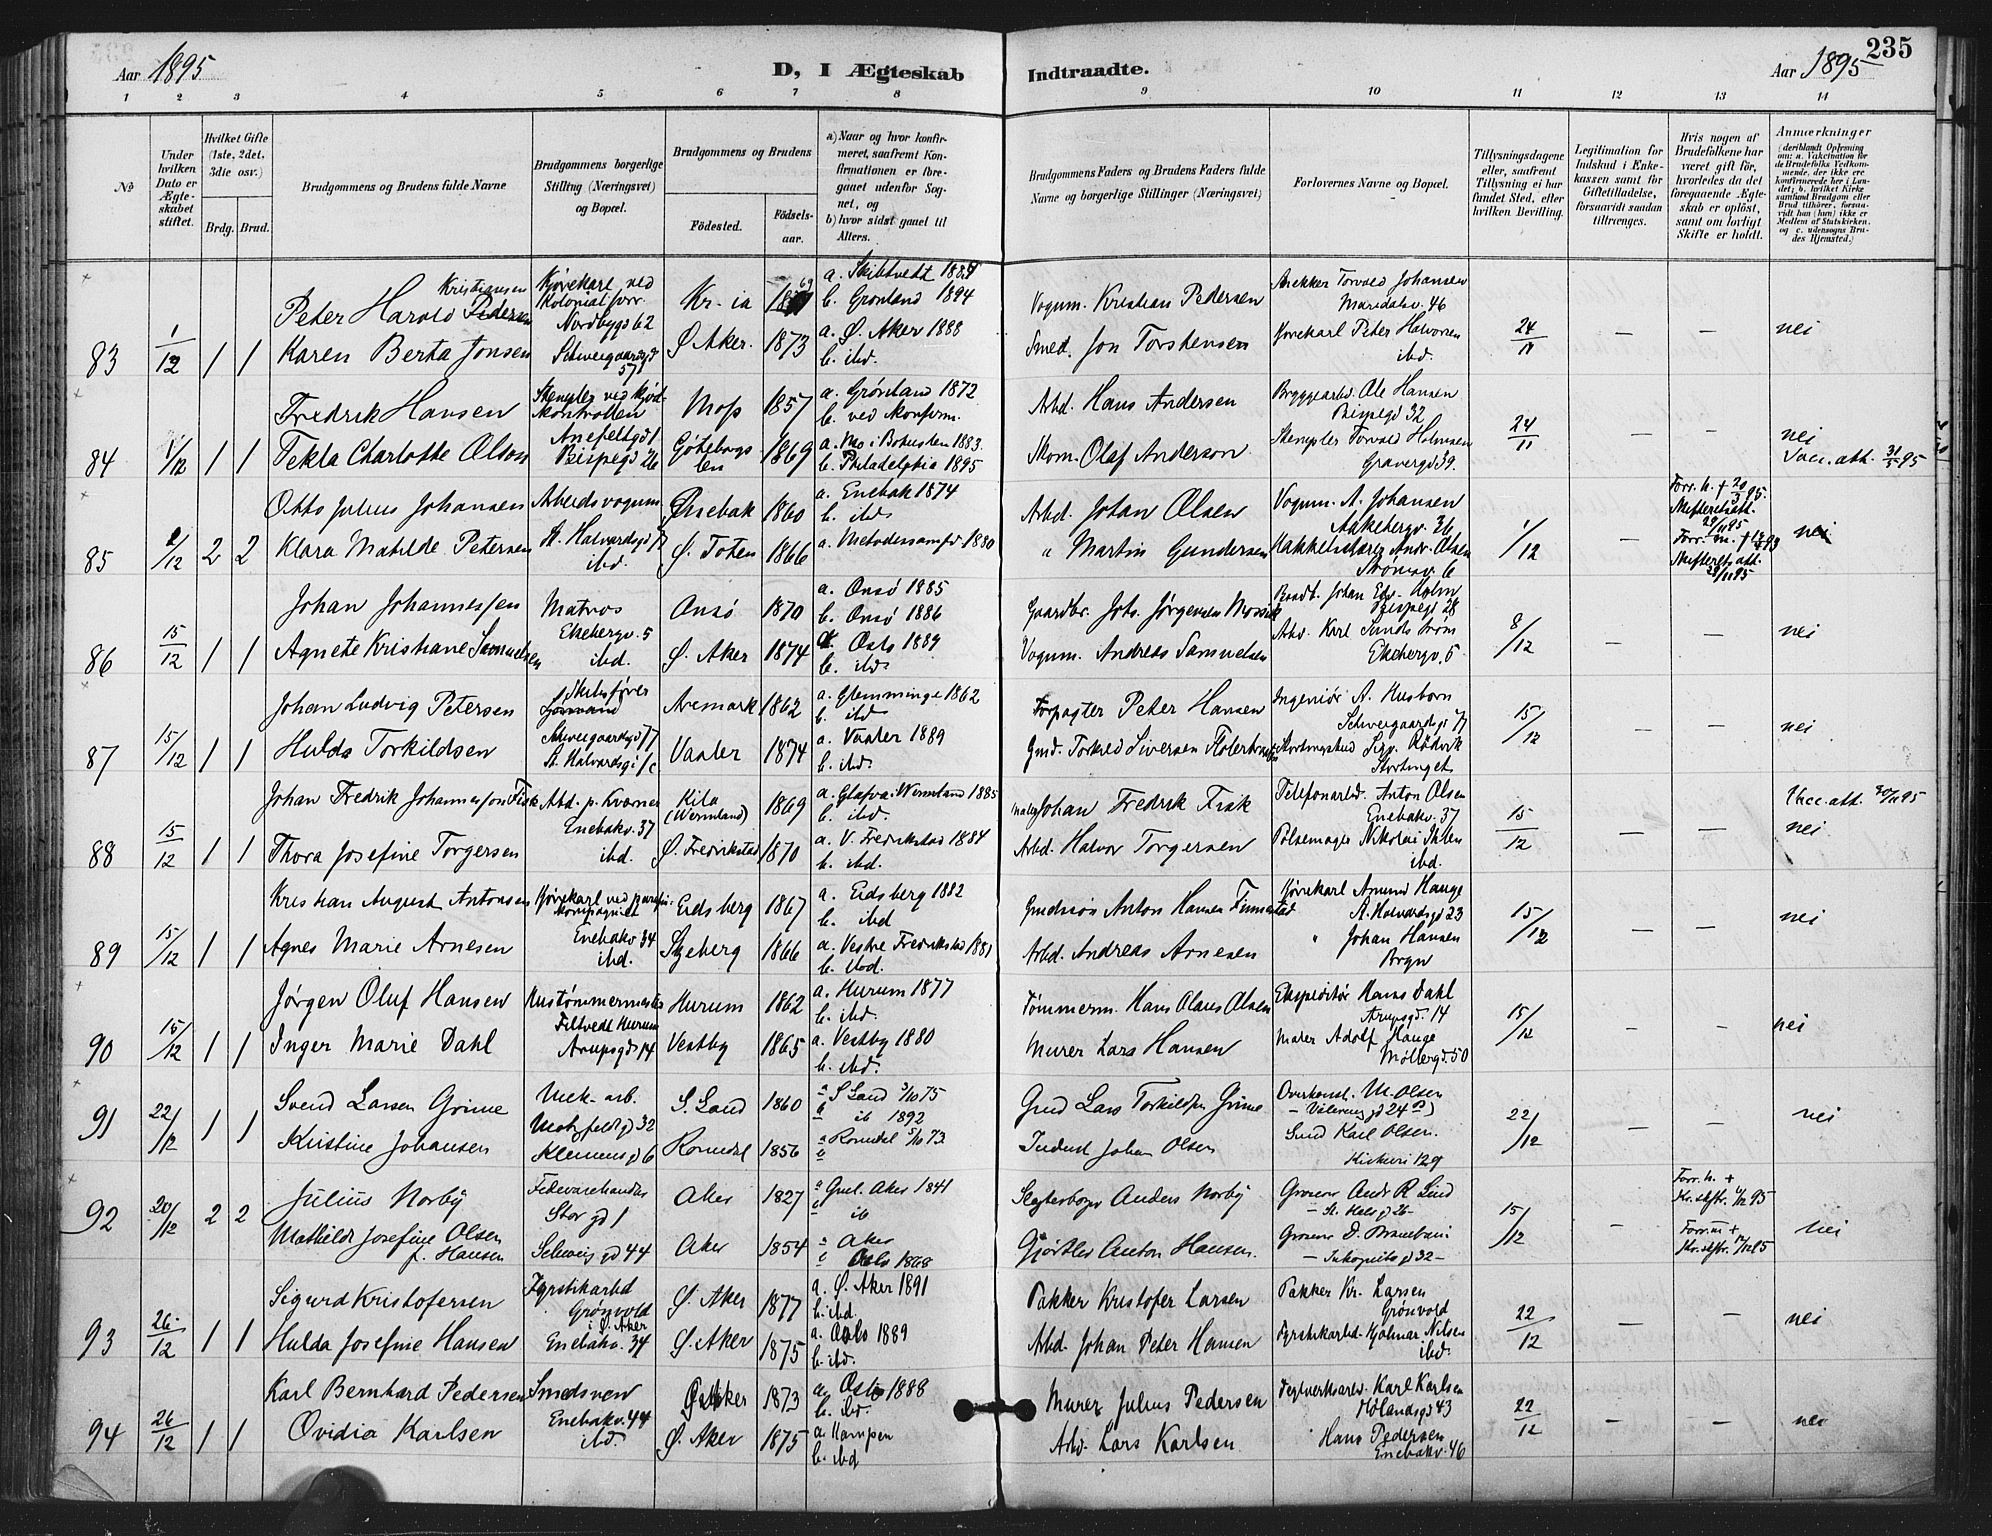 235
Aar 1895
D, I Ægteskab
Indtraadte.
Aar 1895
1 2 3 4 5 6 7 8 9 10 11 12 13 14
No
Under hvilken Dato er Ægteskabet stiftet.
Hvilket Gifte (1ste, 2det, 3die osv.)
Brdg. Brud.
Brudgommens og Brudens fulde Navne
Brudgommens borgerlige Stilling (Næringsvei) og Bopæl.
Brudgommens og Brudens
Fødested.
Fødselsaar.
a) Naar og hvor konfirmeret, saafremt Konfirmationen er foregaaet udenfor Sognet, og
b) hvor sidst gaaet til Alters.
Brudgommens Faders og Brudens Faders fulde Navne og borgerlige Stillinger (Næringsvei)
Forlovernes Navne og Bopæl.
Tillysningsdagene eller, saafremt Tillysning ei har fundet Sted, efter hvilken Bevilling.
Legitimation for Indskud i Enkekassen samt for Giftetilladelse, forsaavidt saadan tiltrænges.
Hvis nogen af Brudefolkene har været gift før, hvorledes da det foregaaende Ægteskab er opløst, samt om lovligt Skifte er holdt.
Anmærkninger
(deriblandt Oplysning om: a. Vakcination for de Brudefolks Vedkommende, der ikke ere konfirmerede her i Landet; b. hvilket Kirkesamfund Brudgom eller Brud tilhører, forsaavidt han (hun) ikke er Medlem af Statskirken, og c. udensogns Brudes Hjemsted.)
83 1/12 1 1
Peter Harold Kristiansen Pedersen
Kjørekarl ved Kolonialforr. Nordbygd 62
Kr-ia
a. Skibtvedt 1884
b. Grønland 1894
Vognm. Kristian Pedersen
Torvald Johansen Maridalsv. 46
Karen Berta Jonsen
Schweigaardsgd 57
Ø. Aker. 1873
a. Ø. Aker 1888
b. ibd.
Smed. Jon Torstensen
Kjørekarl Peter Halvorsen ibd.
24/11 – – nei
84 1/12 1 1
Fredrik Hansen
Stempler ved Kjødkontrollen
Moss 1857
a. Grønland 1872
b. ved Konfirm.
Arbd. Hans Andersen
Bryggearbd. Ole Hansen Bispegd 32
Tekla Charlotte Olson
Bispegd 26
Göteborgs len 1869
a. Mo i Bohuslen 1883.
b. Philadelphia 1895
Skom. Olaf Anderson
Stempler Torvald Holmsen Gravergd 39.
24/11 – – nei
Vacc. att. 31/5 95
85 2/12 2 2
Otto Julius Johansen
Arbeidsvognm. St. Halvardsgd 7
Enebak 1860
a. Enebak 1874
b. ibd
Arbd. Johan Olsen
Vognm. A. Johansen Aakebergv. 36
Klara Matilde Petersen
ibd.
Ø. Toten 1866
a. Metodesamfd 1880
" Martin Gundersen
Andr. Olsen Strømsv. 6
1/12 –
Forr. h. † 20/3 95.
Skifteretsatt. 29/11 95
Skifteretsatt. 29/11 95
nei
86 15/12 1 1
Johan Johannessen
Matros Ekebergv. 5
Onsø 1870
a. Onsø 1885
b. Onsø 1886
Gaardbr. Johs. Jørgensen
Baadb. Johan Edv. Holm Bispegd 28
Agnete Kristiane Samuelsen
ibd.
Ø. Aker 1874
a. Oslo 1889
b. ibd
Vognm. Andreas Samuelsen
Arb. Karl Sundstrøm Ekebergv. 5
8/12 – – nei
87 15/12 1 1
Johan Ludvig Petersen
Skibsfører Schweigaardsgd 77
Aremark 1862
a. Glemminge 1862
b. ibd
Forpagter Peter Hansen
Ingeniør A. Husborn Schweigaardsgd 77
Hulda Torkildsen
St. Halvardsg.
Vaaler 1874
a. Vaaler 1889
b. ibd.
Gmd. Torkild Siversen
Stortinget
15/12 – – nei
88 15/12 1 1
Johan Fredrik Johannesson Fisk
Arbd. p. Kværner Enebakv. 37
Kila (Wermland) 1869
a. Glafva i Wermland 1885
b. ibd.
Maler Johan Fredrik Fisk
Telefonarbd. Anton Olsen Enebakv. 37
Vacc. att. 30/11 95
Thora Josefine Torgersen
ibd.
Ø. Fredrikstad 1870
a. V. Fredrikstad 1884
b. ibd.
Arbd. Halvor Torgersen
Pølsemager Nikolai Ihlen ibd.
15/12 – – nei
89 15/12 1 1
Kristian August Antonsen
Kjørekarl ved
Enebakv 34
Eidsberg 1867
a. Eidsberg 1882
b. ibd
Gmdssøn Anton Hansen Finnestad
Kjørekarl Amund Hauge St. Halvardsgd 23
Agnes Marie Arnesen
ibd.
Skjeberg 1866
a. Vestre Fredrikstad 1881
b. ibd.
Arbd. Andreas Arnesen
" Johan Hansen Bryn
15/12 – – nei
90 15/12 1 1
Jørgen Oluf Hansen
Hustømmermester Filtvedt Hurum
Hurum 1862
a. Hurum 1877
b. ibd.
Tømmerm. Hans Olaus Olsen
Ekspeditør Hans Dahl Arupsgd. 14
Inger Marie Dahl
Arupsgd 14
Vestby 1865
a. Vestby 1880
b. ibd.
Murer Lars Hansen
Maler Adolf Hauge Møllergd. 50
15/12 – – nei
91 22/12 1 1
Svend Larsen Grime
Mek. arb. Motzfeldtgd 32
S. Land 1860
a S Land 3/10 75
b ib 1892
Gmd Lars Torkildsen Grime
Overkonst. M. Olsen – Vålereng gd 24
Kristine Johansen
Klemensgd 6
Romedal 1856
a Romedal 5/10 73
b "
Inderst Johan Olsen
Smed Karl Olsen.
22/12 – – nei
92 20/12 2 2
Julius Norby
Fedevarehandler Storgd 1
Aker 1827
a Aker 1841
b ib
Anders Norby
Grosserer Andr R Lind – St. Halv gd 26 –
Mathilde Josefine Olsen f. Hansen
Schweig gd 44
Aker 1854
a Aker
b Oslo 1868
Gjørtler Anton Hansen.
Grosserer D.
15/12
Forr. h. +
Forr. m +
nei
93 26/12 1 1
Sigurd Kristofersen
Fyrstikarbd Grønvold i Ø Aker
Ø. Aker 1877
a. Ø. Aker 1891
b. ibd.
Pakker Kristofer Larsen
Pakker Kr. Larsen Grønvold
Hulda Josefine Hansen
Enebakv. 34
Ø. Aker 1875
a. Oslo 1889
b. ibd.
Arbd. Johan Peter Hansen
Fyrstikarbd. Hjalmar Nilsen ibd.
22/12 – – nei
94 26/12 1 1
Karl Bernhard Pedersen
Smedsven Enebakv. 44
Ø. Aker 1873
a. Oslo 1888
b. ibd.
Murer Julius Pedersen
Teglverksarb. Karl Karlsen Hølandsgd 43
Ovidia Karlsen
ibd.
Ø. Aker 1875
a. Kampen
b. ibd
Arb. Lars Karlsen
" Hans Pedersen Enebakv. 46
22/12 – – nei